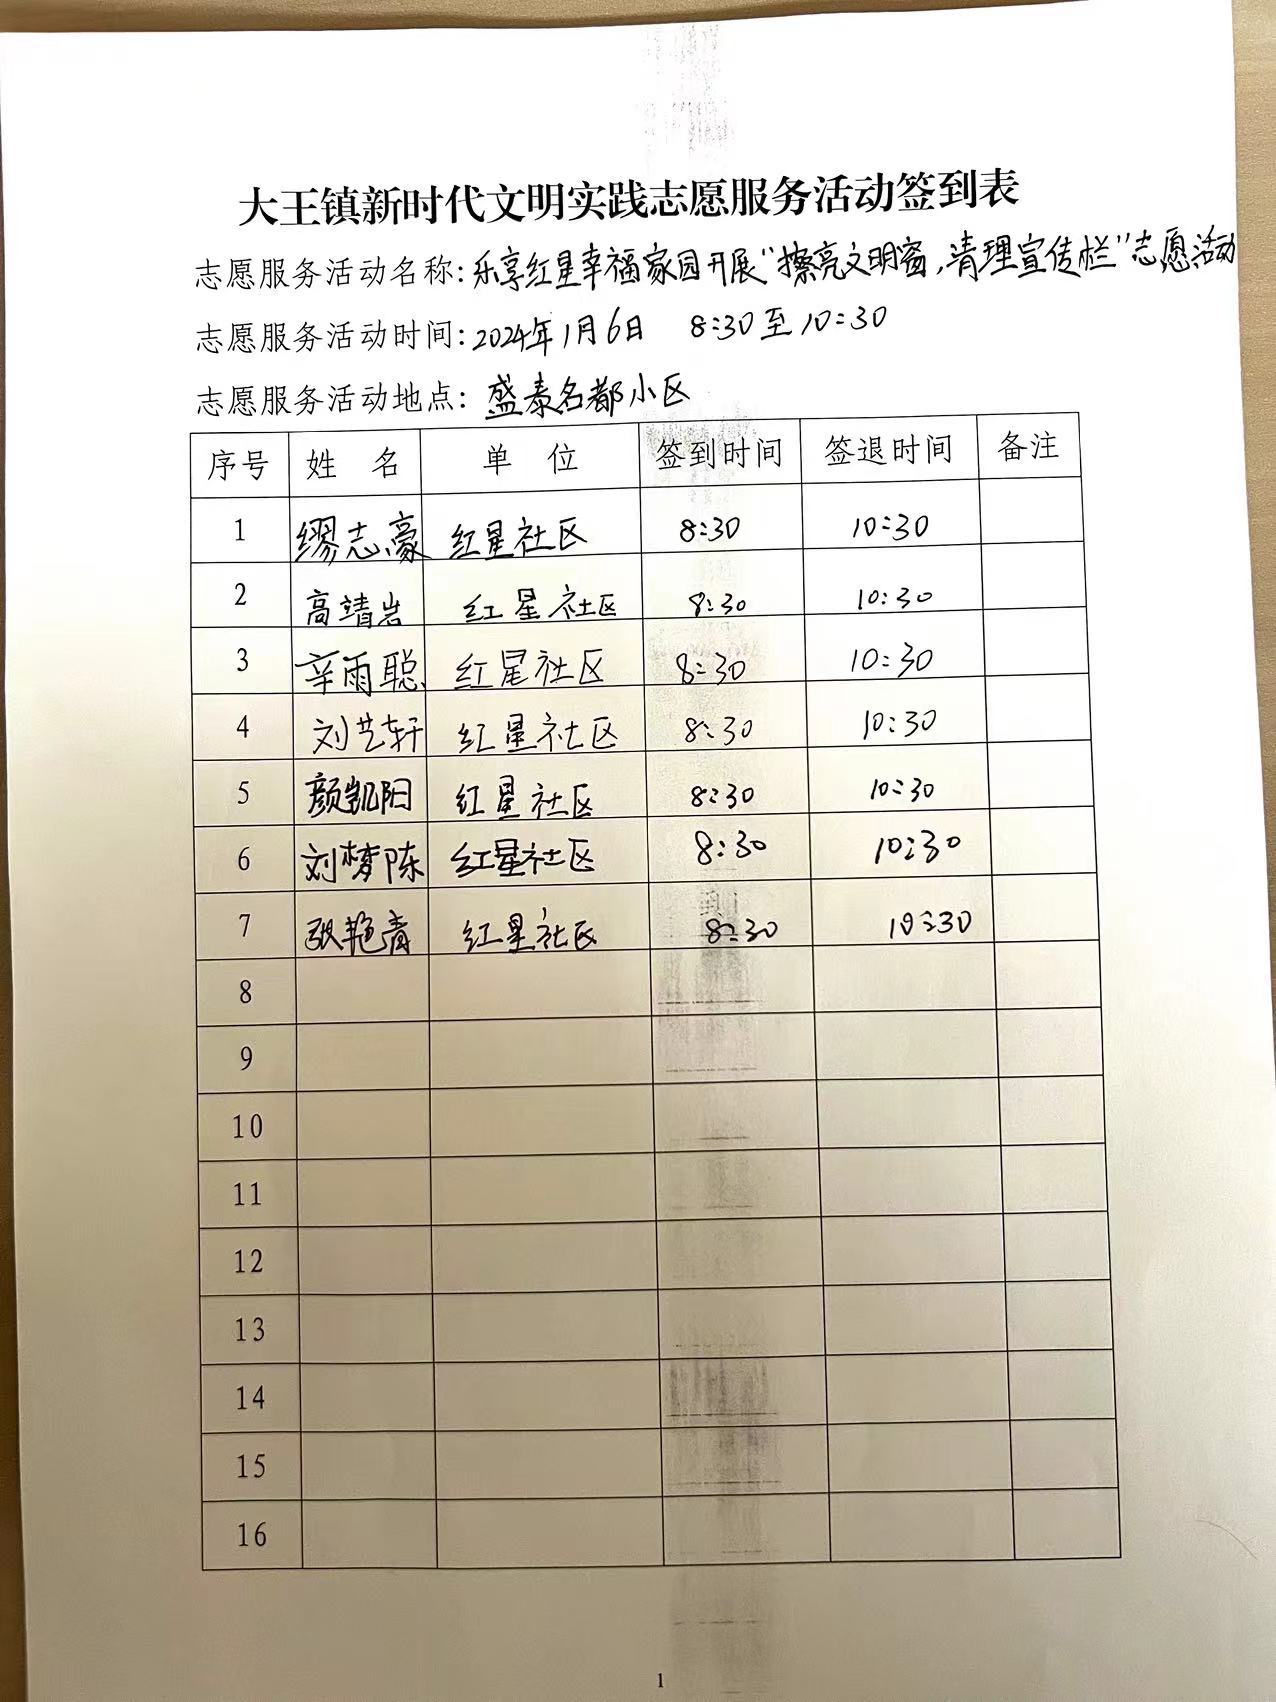 大王镇新时代文明实践志愿服务活动签到表
志愿服务活动名称:乐享红星幸福家园开展"擦亮文明窗,清理宣传栏"志愿活动
志愿服务活动时间:2024年1月6日 8:30至10:30
志愿服务活动地点:盛泰名都小区
序号 姓 名 单 位 签到时间 签退时间 备注
1 缪志豪 红星社区 8:30 10:30
2 高靖岩 红星社区 8:30 10:30
3 辛雨聪 红星社区 8:30 10:30
4 刘艺轩 红星社区 8:30 10:30
5 颜凯阳 红星社区 8:30 10:30
6 刘梦陈 红星社区 8:30 10:30
7 张艳青 红星社区 8:30 10:30
8
9
10
11
12
13
14
15
16
1